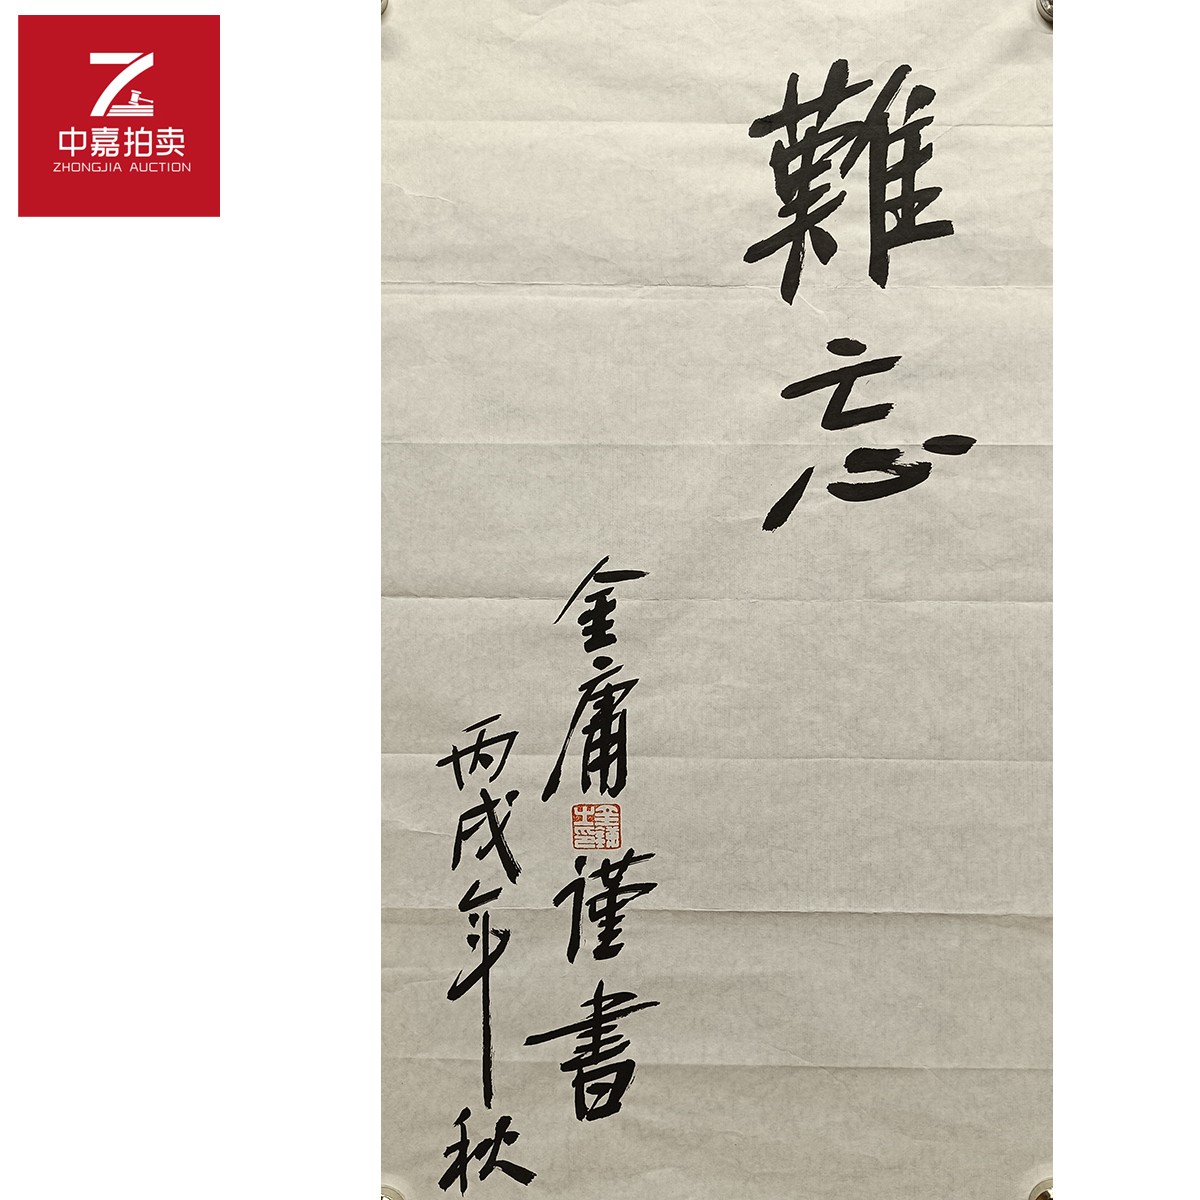 中嘉拍卖
ZHONGJIA AUCTION
難忘
金庸謹書
丙戌年秋